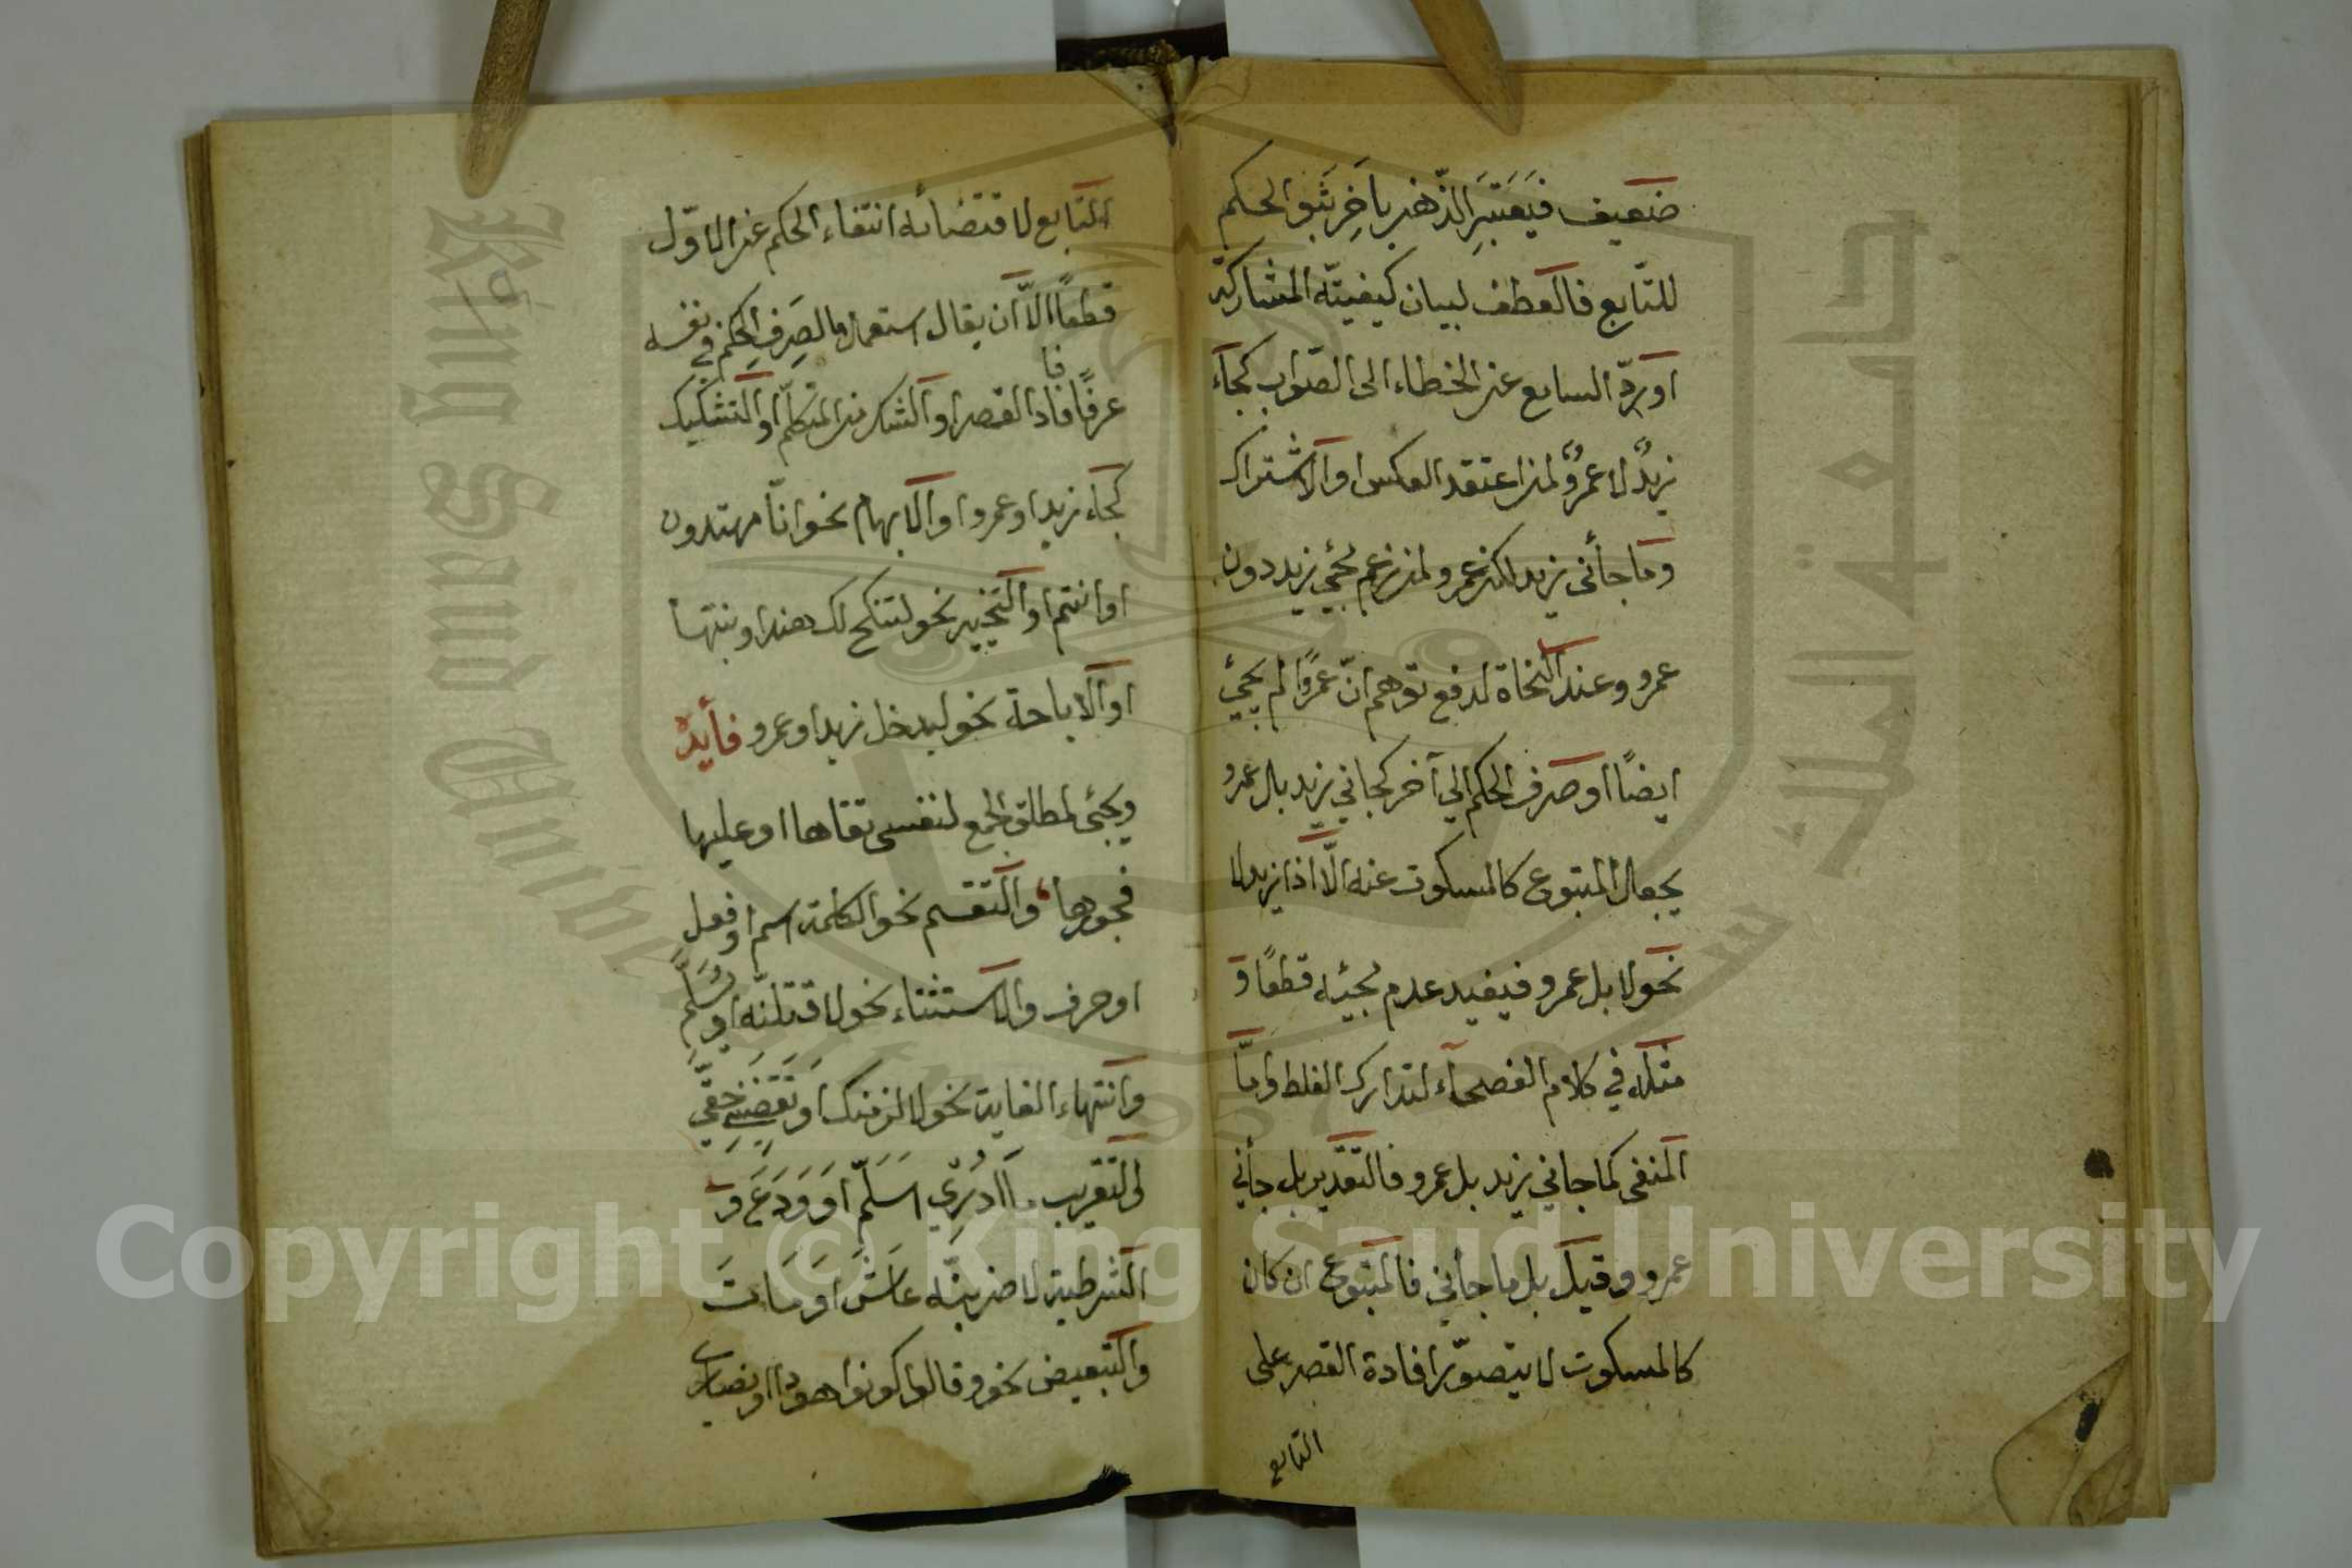 ضعيف فيعتبر الذهن باخر ثبو الحكم
للتّابع فالعطف لبيان كيفيته المشاركة
او ردّ السامع عن الخطاء الى الصّواب كجآء
زيدٌ لا عمروٌ لمن اعتقد العكس او الاشتراك
وما جأنى زيد لكن عمرو لمن زعم مجئ زيد دون
عمرو وعند النحاة لدفع توهم انّ عمرًوا لم يجئ
ايضًا او صرف الحكم الي آخر كجاني زيد بل عمرو
يجعل المتبوع كالمسكوت عنه الّا اذا زيد لا
نحو لا بل عمرو فيفيد عدم مجيئه قطعًا و
مثله في كلام الفصحآء لتدارك الغلط وامّا
المنفى كما جاني زيد بل عمرو فالتقدير بل جأني
عمرو وقيل بل ما جأني فالمتبوع ان كان
كالمسكوت لا يتصوّر افادة القصر على
التابع
التّابع لاقتضائه انتفاء الحكم عن الاوّل
قطعًا الّا ان يقال استعمال ما لصرف الحكم في نفسه
عرفًا فاد القصر او الشك من المتكلّم او التشكيك
فا
كجآء زيد او عمرو او الابهام نحو انّا مهتدون
او انتم او التخيير نحو لتنكح لك هند او بنتها
او الاباحة نحو ليدخل زيد او عمرو فأيدة
ويجئ لمطلق الجمع لنفسى تقاها او عليها
فجورها والتقسم نحو الكلمة اسم او فعل
او حرف والاستثناء نحو لا قتلنّه او يسلم
وانتهاء الغاية نحو لالزمنك او تقضيني حقّي
والتقريب ما ادري اسلّم او ودع و
الشرطية لا ضربنّه عاش او مات
والتبعيض نحو وقالوا كونوا هودا او نصارى
King Saud University
جامعة الملك سعود
1957
Copyright © King Saud University